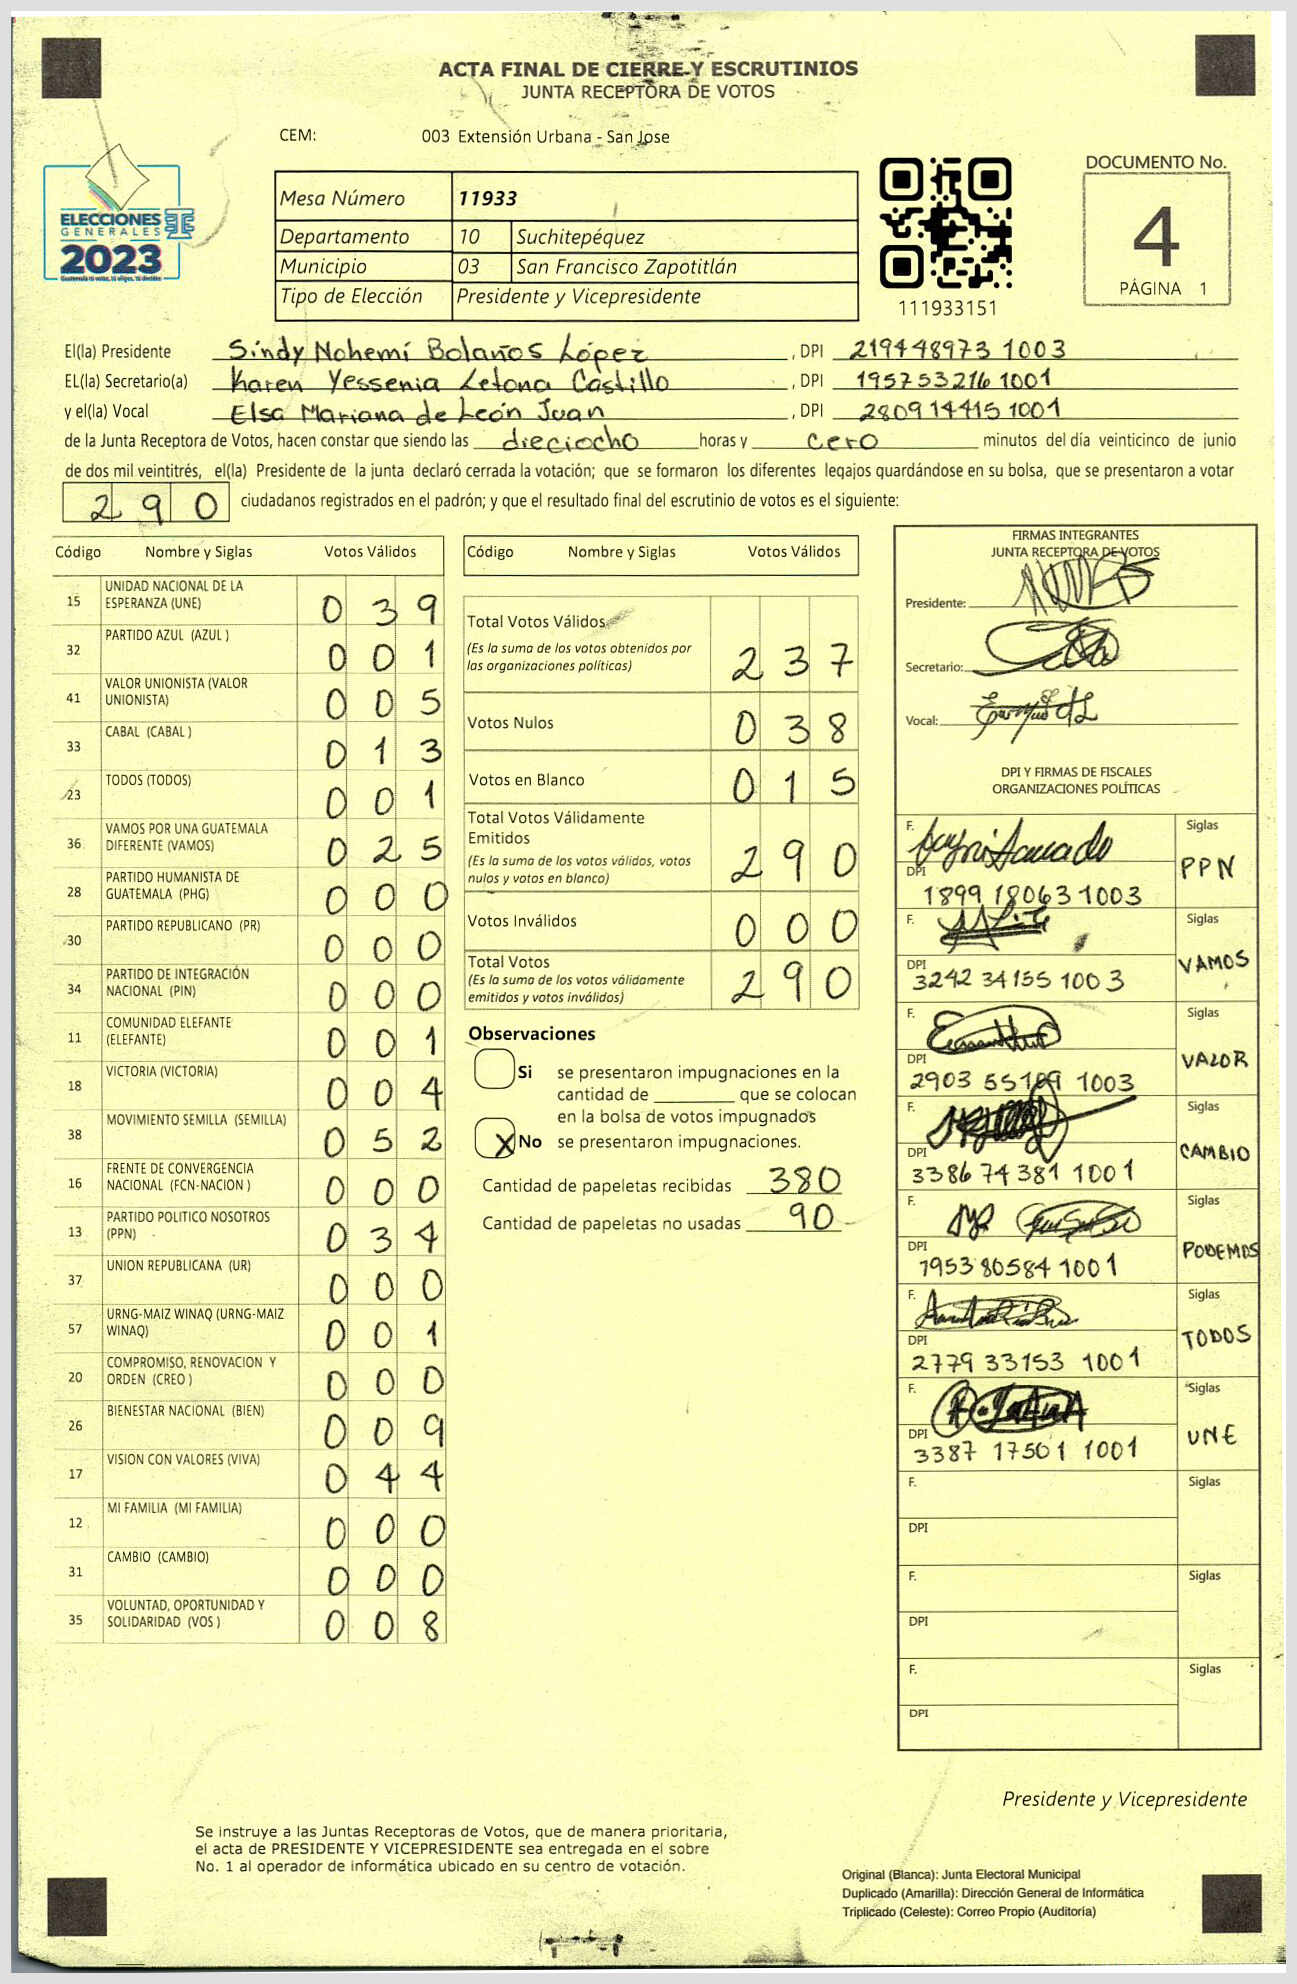 ACTA FINAL DE CIERRE Y ESCRUTINIOS
JUNTA RECEPTORA DE VOTOS
CEM: 003 Extensión Urbana - San Jose
ELECCIONES
GENERALES
2023
Guatemala tú votas, tú eliges, tú decides
Mesa Número 11933
Departamento 10 Suchitepéquez
Municipio 03 San Francisco Zapotitlán
Tipo de Elección Presidente y Vicepresidente
111933151
DOCUMENTO No.
4
PÁGINA 1
El(la) Presidente Sindy Nohemí Bolaños López , DPI 219448973 1003
EL(la) Secretario(a) Karen Yessenia Letona Castillo , DPI 195753216 1001
y el(la) Vocal Elsa Mariana de León Juan , DPI 280914415 1001
de la Junta Receptora de Votos, hacen constar que siendo las dieciocho horas y cero minutos del día veinticinco de junio
de dos mil veintitrés, el(la) Presidente de la junta declaró cerrada la votación; que se formaron los diferentes legajos quardándose en su bolsa, que se presentaron a votar
290 ciudadanos registrados en el padrón; y que el resultado final del escrutinio de votos es el siguiente:
Código Nombre y Siglas Votos Válidos
15 UNIDAD NACIONAL DE LA ESPERANZA (UNE) 039
32 PARTIDO AZUL (AZUL ) 001
41 VALOR UNIONISTA (VALOR UNIONISTA) 005
33 CABAL (CABAL ) 013
23 TODOS (TODOS) 001
36 VAMOS POR UNA GUATEMALA DIFERENTE (VAMOS) 025
28 PARTIDO HUMANISTA DE GUATEMALA (PHG) 000
30 PARTIDO REPUBLICANO (PR) 000
34 PARTIDO DE INTEGRACIÓN NACIONAL (PIN) 000
11 COMUNIDAD ELEFANTE (ELEFANTE) 001
18 VICTORIA (VICTORIA) 004
38 MOVIMIENTO SEMILLA (SEMILLA) 052
16 FRENTE DE CONVERGENCIA NACIONAL (FCN-NACION ) 000
13 PARTIDO POLITICO NOSOTROS (PPN) 034
37 UNION REPUBLICANA (UR) 000
57 URNG-MAIZ WINAQ (URNG-MAIZ WINAQ) 001
20 COMPROMISO, RENOVACION Y ORDEN (CREO ) 000
26 BIENESTAR NACIONAL (BIEN) 009
17 VISION CON VALORES (VIVA) 044
12 MI FAMILIA (MI FAMILIA) 000
31 CAMBIO (CAMBIO) 000
35 VOLUNTAD, OPORTUNIDAD Y SOLIDARIDAD (VOS ) 008
Código Nombre y Siglas Votos Válidos
Total Votos Válidos 237
(Es la suma de los votos obtenidos por
las organizaciones políticas)
Votos Nulos 038
Votos en Blanco 015
Total Votos Válidamente
Emitidos 290
(Es la suma de los votos válidos, votos
nulos y votos en blanco)
Votos Inválidos 000
Total Votos 290
(Es la suma de los votos válidamente
emitidos y votos inválidos)
Observaciones
Si se presentaron impugnaciones en la
cantidad de ________ que se colocan
en la bolsa de votos impugnados
X No se presentaron impugnaciones.
Cantidad de papeletas recibidas 380
Cantidad de papeletas no usadas 90
FIRMAS INTEGRANTES
JUNTA RECEPTORA DE VOTOS
Presidente:
Secretario:
Vocal:
DPI Y FIRMAS DE FISCALES
ORGANIZACIONES POLÍTICAS
F. Siglas
DPI 1899 18063 1003 PPN
F. Siglas
DPI 3242 34155 1003 VAMOS
F. Siglas
DPI 2903 55109 1003 VALOR
F. Siglas
DPI 3386 74381 1001 CAMBIO
F. Siglas
DPI 1953 80584 1001 PODEMOS
F. Siglas
DPI 2779 33153 1001 TODOS
F. Siglas
DPI 3387 17501 1001 UNE
F. Siglas
DPI
F. Siglas
DPI
F. Siglas
DPI
Presidente y Vicepresidente
Se instruye a las Juntas Receptoras de Votos, que de manera prioritaria,
el acta de PRESIDENTE Y VICEPRESIDENTE sea entregada en el sobre
No. 1 al operador de informática ubicado en su centro de votación.
Original (Blanca): Junta Electoral Municipal
Duplicado (Amarilla): Dirección General de Informática
Triplicado (Celeste): Correo Propio (Auditoría)